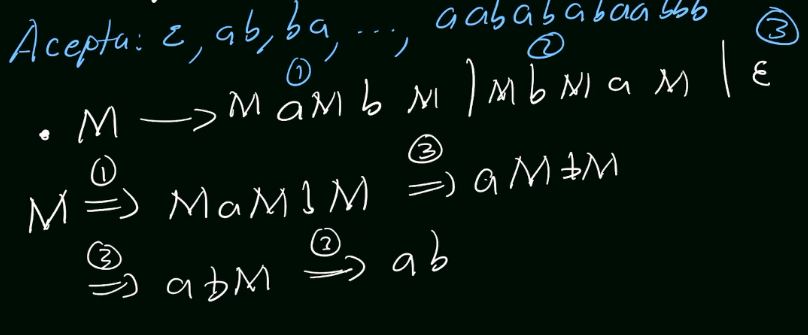 Acepta: ε, ab, ba, ..., aabababaabbb
① ② ③
• M → MaMbM | MbMaM | ε
① ③
M ⇒ MaMbM ⇒ aMbM
③ ③
⇒ abM ⇒ ab